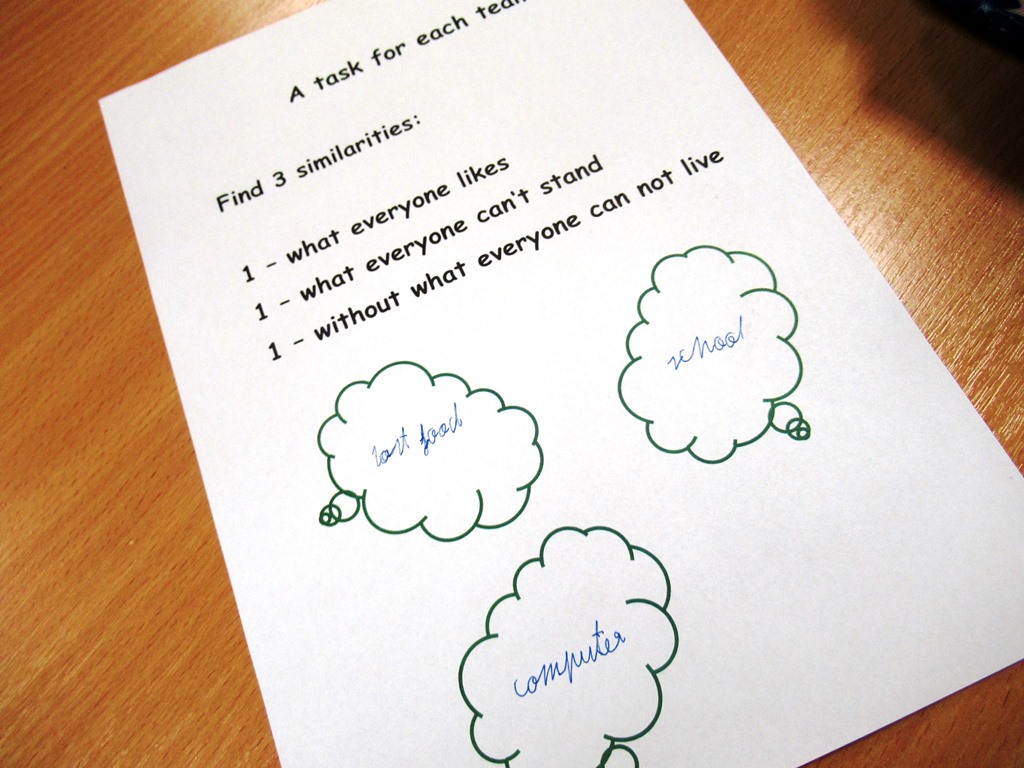 A task for each team
Find 3 similarities:
1 - what everyone likes
1 - what everyone can't stand
1 - without what everyone can not live
school
fast food
computer